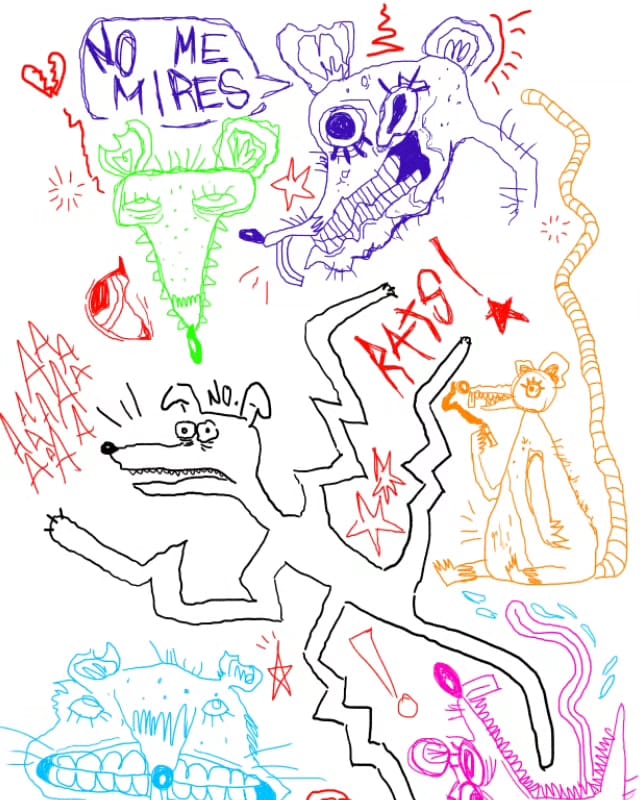 NO ME
MIRES
RATS!
AAA
AAAA
AAAA
AAAA
AAA
NO.
!